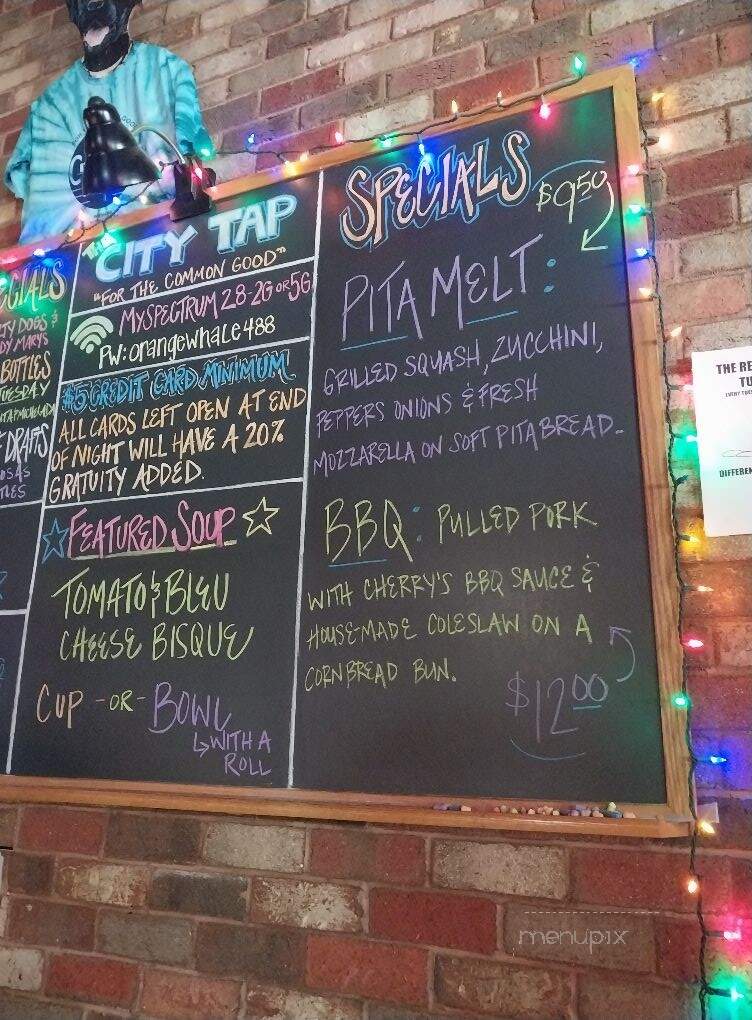 SPECIALS
BOTTLES
DRAFTS
THE CITY TAP
"FOR THE COMMON GOOD"
MYSPECTRUM 28-2G OR 5G
PW: orangewhale488
$5 CREDIT CARD MINIMUM
ALL CARDS LEFT OPEN AT END
OF NIGHT WILL HAVE A 20%
GRATUITY ADDED.
FEATURED SOUP
TOMATO & BLEU
CHEESE BISQUE
CUP -OR- BOWL
WITH A
ROLL
SPECIALS
$9.50
PITA MELT:
GRILLED SQUASH, ZUCCHINI,
PEPPERS ONIONS & FRESH
MOZZARELLA ON SOFT PITA BREAD.
BBQ: PULLED PORK
WITH CHERRY'S BBQ SAUCE &
HOUSE-MADE COLESLAW ON A
CORNBREAD BUN.
$12.00
THE RE
TU
DIFFEREN
menupix